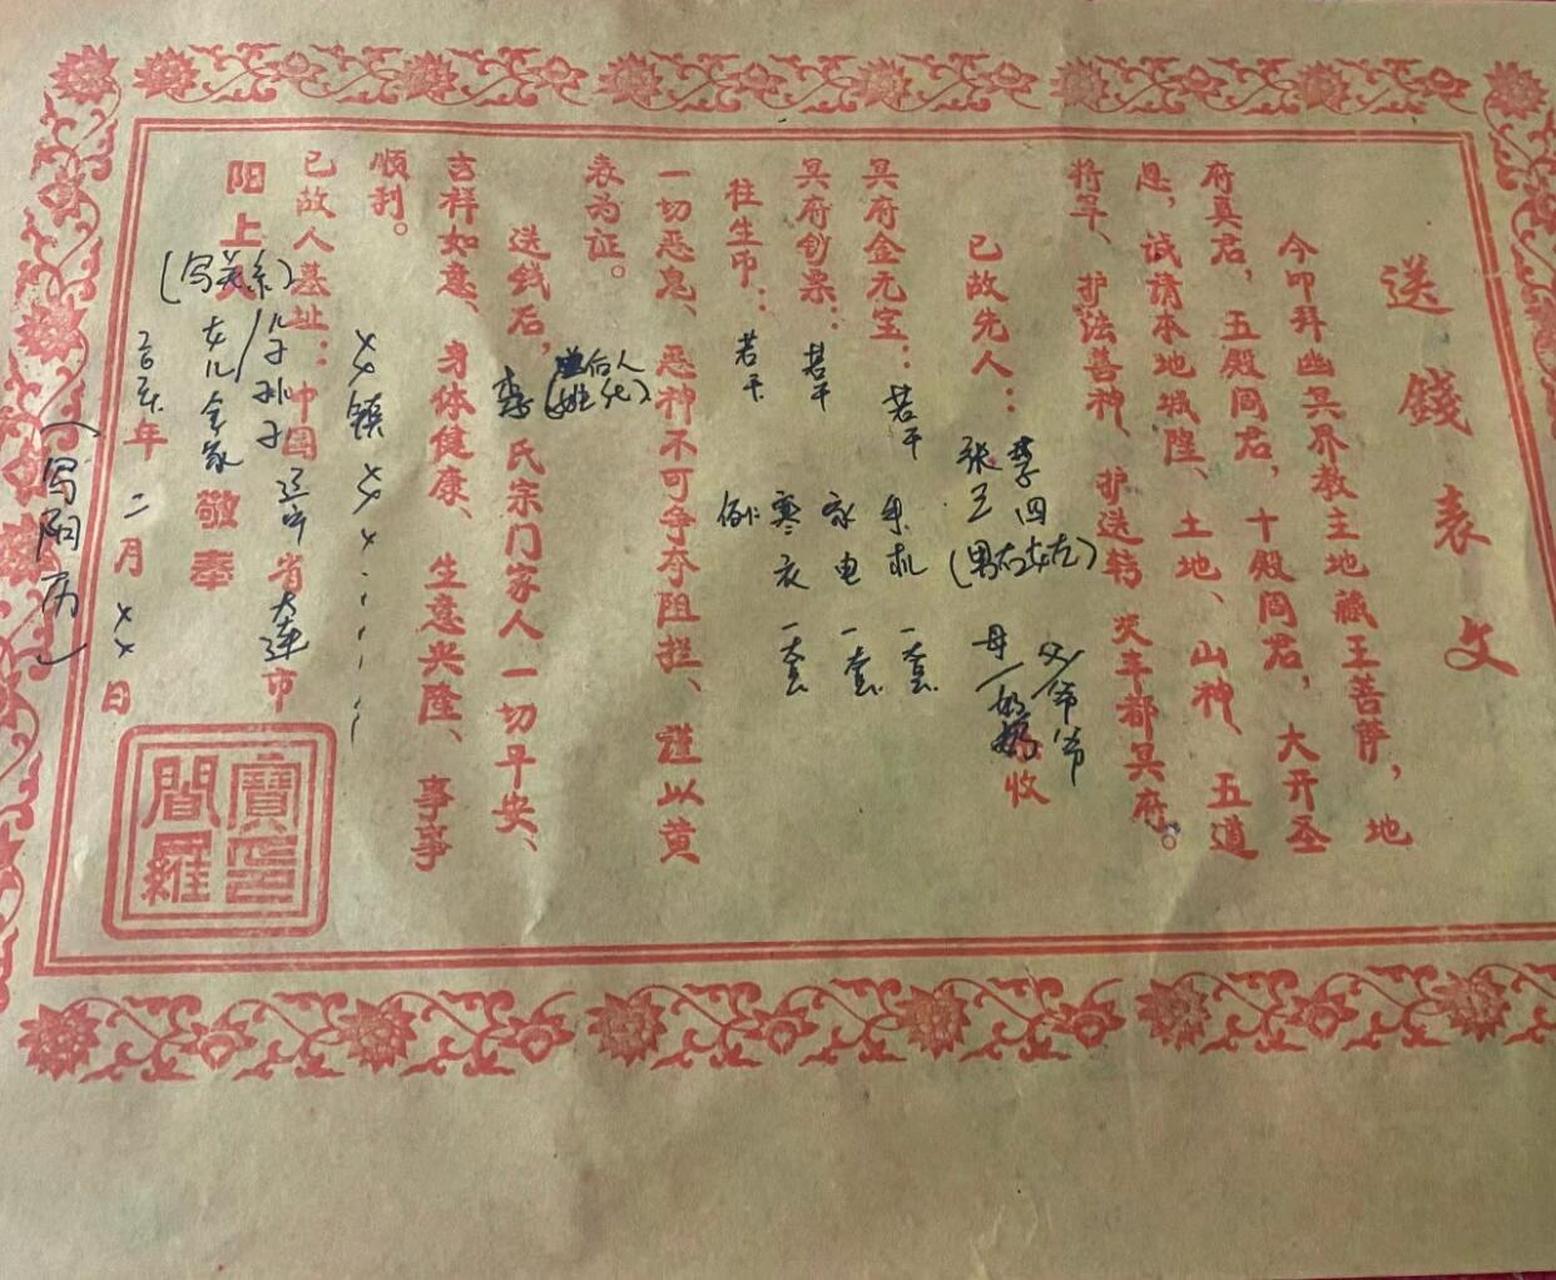 送錢表文
今叩拜幽冥界教主地藏王菩萨，地
府真君，五殿阎君，十殿阎君，大开圣
恩，诚请本地城隍、土地、山神、五道
将军、护法善神、护送转交丰都冥府。
已故先人：李四 张三 (男右女左) 父/爷爷 母/奶奶 收
冥府金元宝：若干 手机一套
冥府钞票：若干 家电一套
往生币：若干 例: 寒衣一套
一切恶鬼、恶神不可争夺阻拦、谨以黄
表为证。
送钱后，李氏宗门家人一切平安、
吉祥如意、身体健康、生意兴隆、事事
顺利。
已故人墓址：中国辽宁省大连市
××镇××
阳上人 (写关系) 儿子/孙子 女儿全家 敬奉
年二月××日
(写阳历)
寶印
閻羅